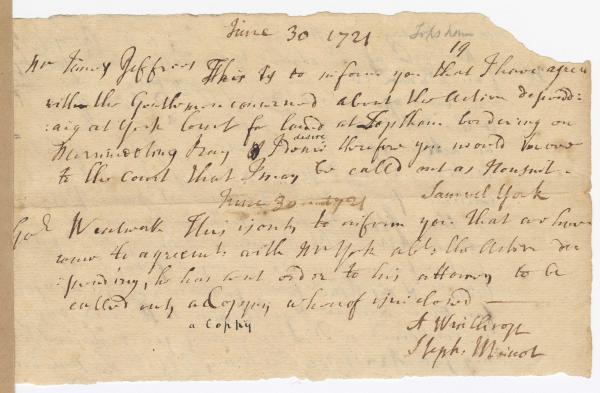 June 30 1721
Topsham
19
Mr Jeffries This Is to inform you that I have agreed
with the Gentlemen concerned about the Action depend
:ing at York Court for land at Topsham bordering on
Merrimeeting bay & desire therefore you would move
to the Court that I may be called out as Nonsuit -
Samuel York
June 30 1721
Wentworth This is only to inform you that we have
come to agreement with Mr York abt the Action de
:pending, he has sent order to his attorney to be
called out, a Coppy whereof is inclosed —
a Coppy
A Winthrop
Steph: Minot